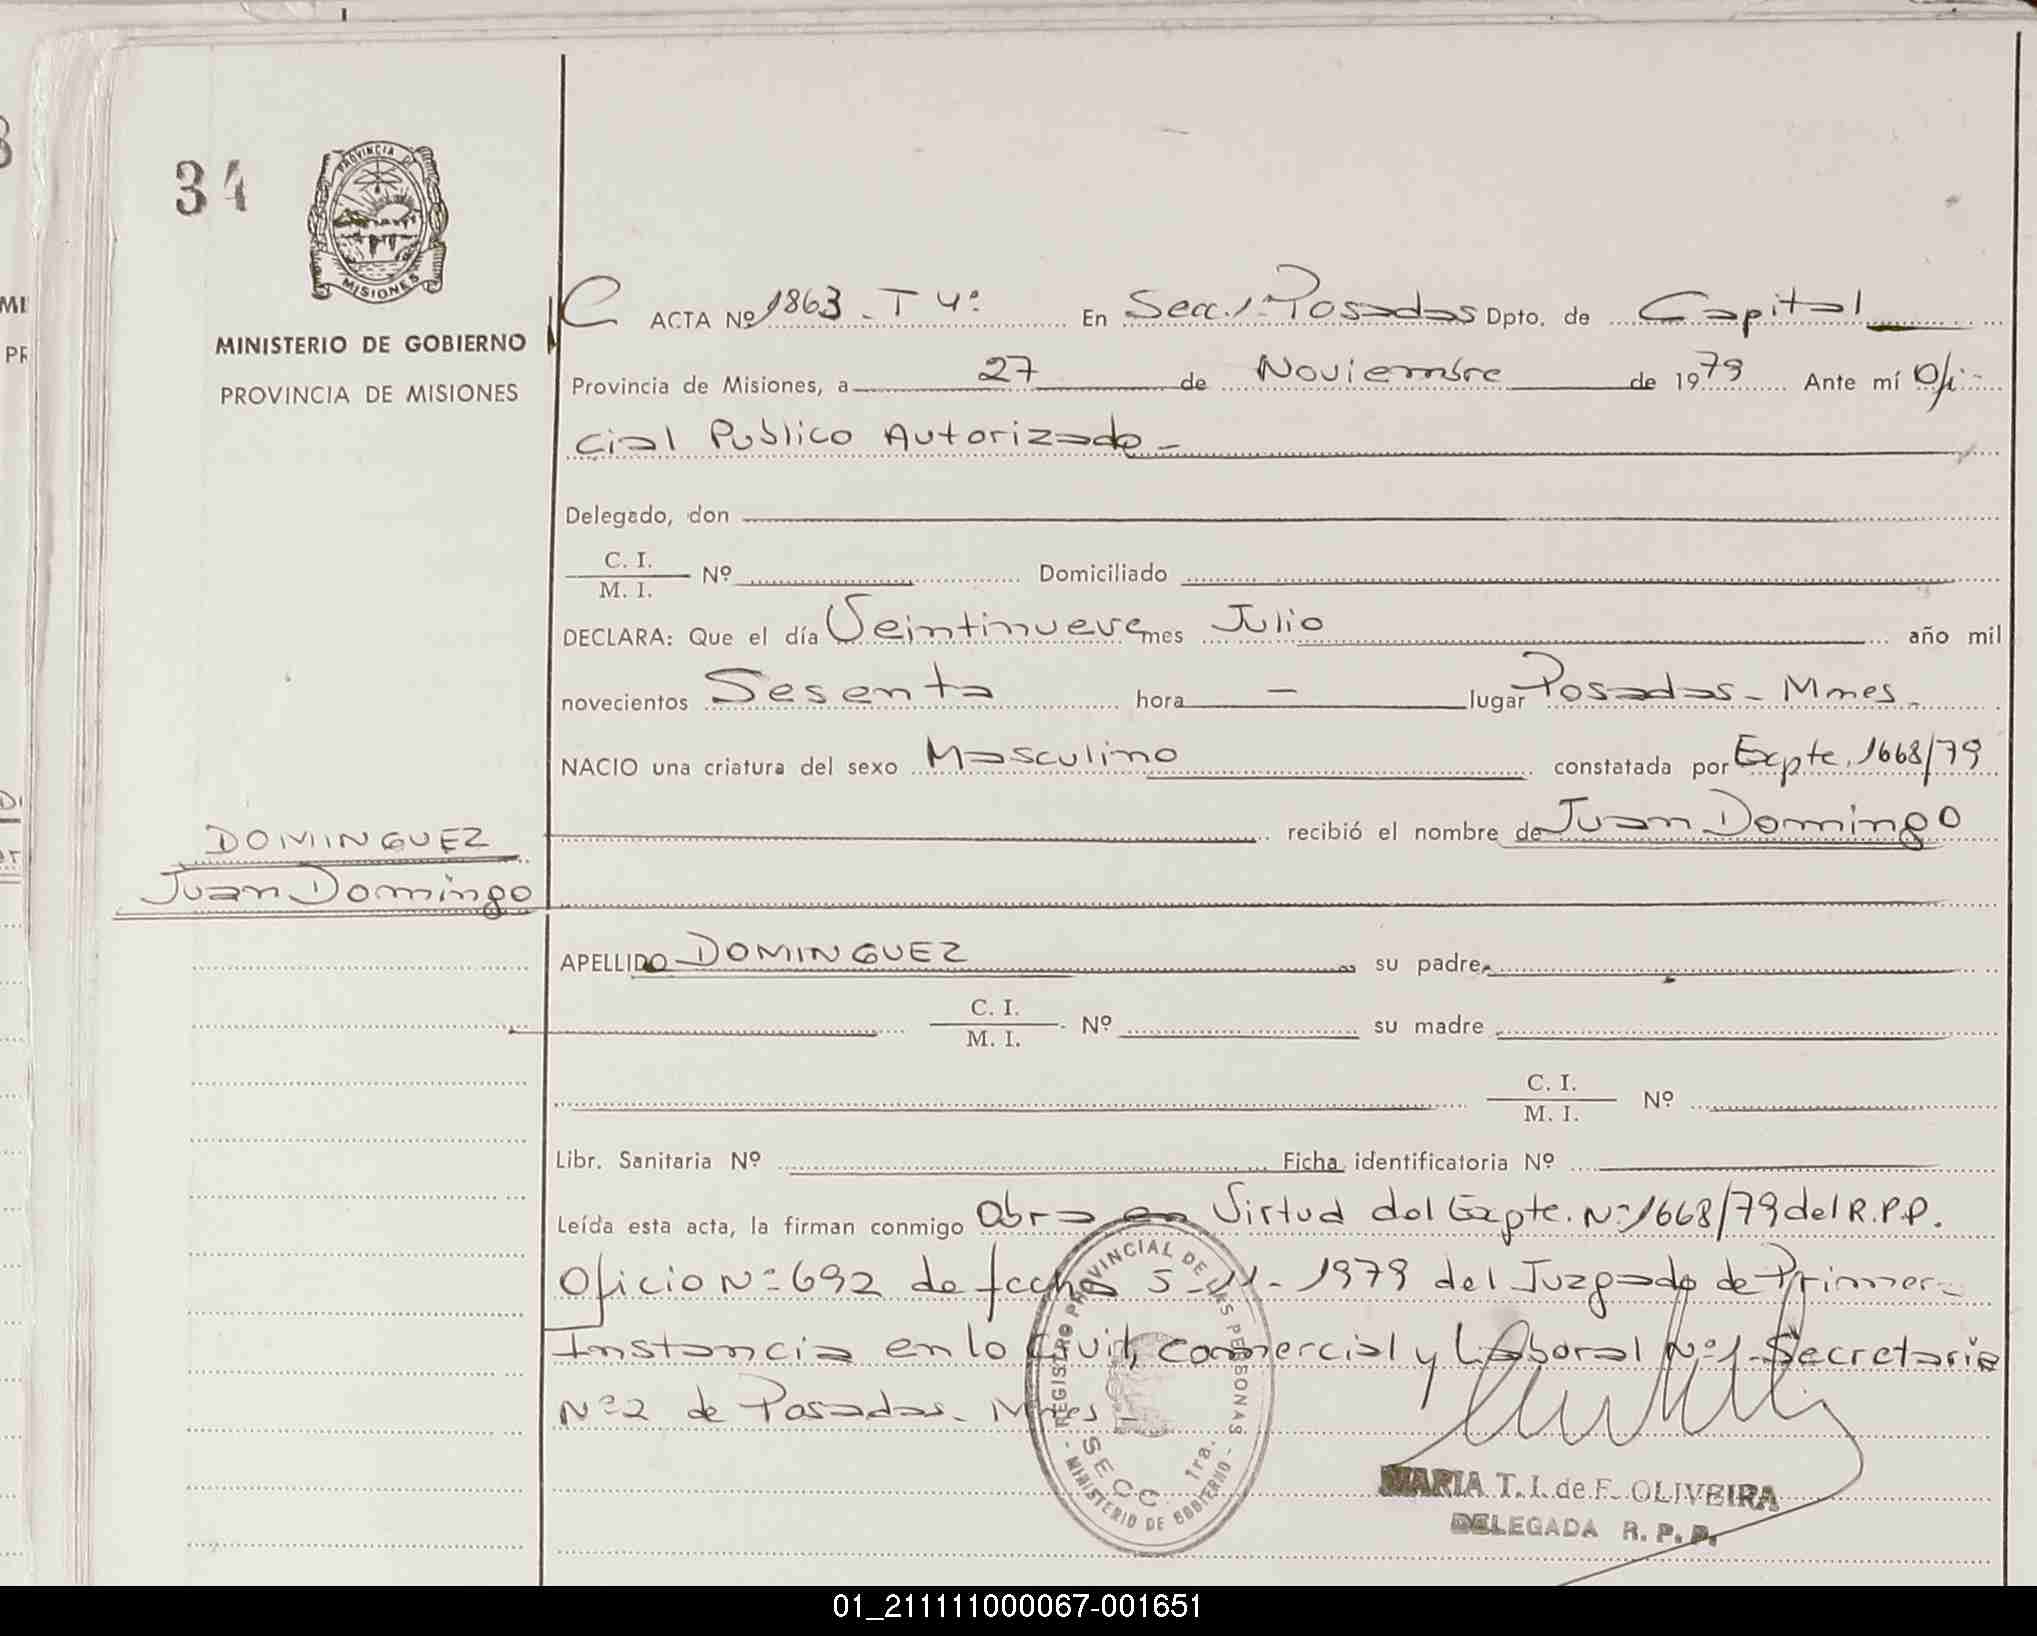 34
PROVINCIA DE
MISIONES
MINISTERIO DE GOBIERNO
PROVINCIA DE MISIONES
C ACTA Nº 1863 - T 4º En Secc. 1ª Posadas Dpto. de Capital
Provincia de Misiones, a 27 de Noviembre de 1979 Ante mí Ofi-
cial Publico Autorizado -
Delegado, don
C. I.
M. I. Nº Domiciliado
DECLARA: Que el día Veintinueve mes Julio año mil
novecientos Sesenta hora — lugar Posadas - Mnes.
NACIO una criatura del sexo Masculino constatada por Expte. 1668/79
recibió el nombre de Juan Domingo
DOMINGUEZ
Juan Domingo
APELLIDO DOMINGUEZ su padre
C. I.
M. I. Nº su madre
C. I.
M. I. Nº
Libr. Sanitaria Nº Ficha identificatoria Nº
Leída esta acta, la firman conmigo Obra en Virtud del Expte. Nº 1668/79 del R.P.P.
Oficio Nº 692 de fecha 5-11-1979 del Juzgado de Primera
Instancia en lo Civil, comercial y Laboral Nº 1 Secretaria
Nº 2 de Posadas - Mnes -
REGISTRO PROVINCIAL DE LAS PERSONAS
SECC. 1ra.
- MINISTERIO DE GOBIERNO -
MARIA T. I. de F. OLIVEIRA
DELEGADA R. P. P.
01_211111000067-001651